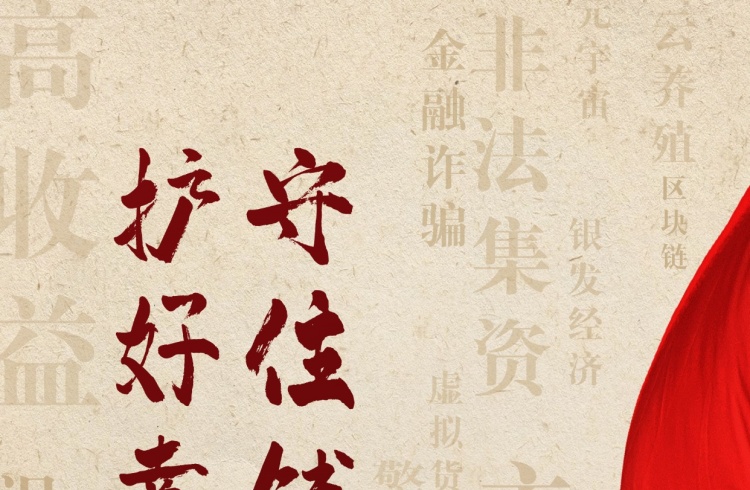 云养殖
区块链
元宇宙
银发经济
非法集资
金融诈骗
虚拟货
守住钱
护好幸
高收益